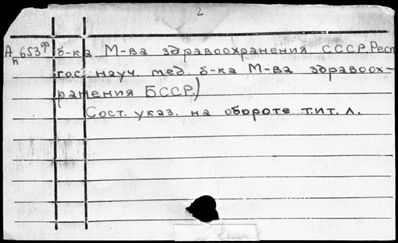 2
Ап653ф б-ка М-ва здравоохранения СССР. Респ
гос. науч. мед. б-ка М-ва здравоох-
ранения БССР.)
Сост. указ. на обороте тит. л.